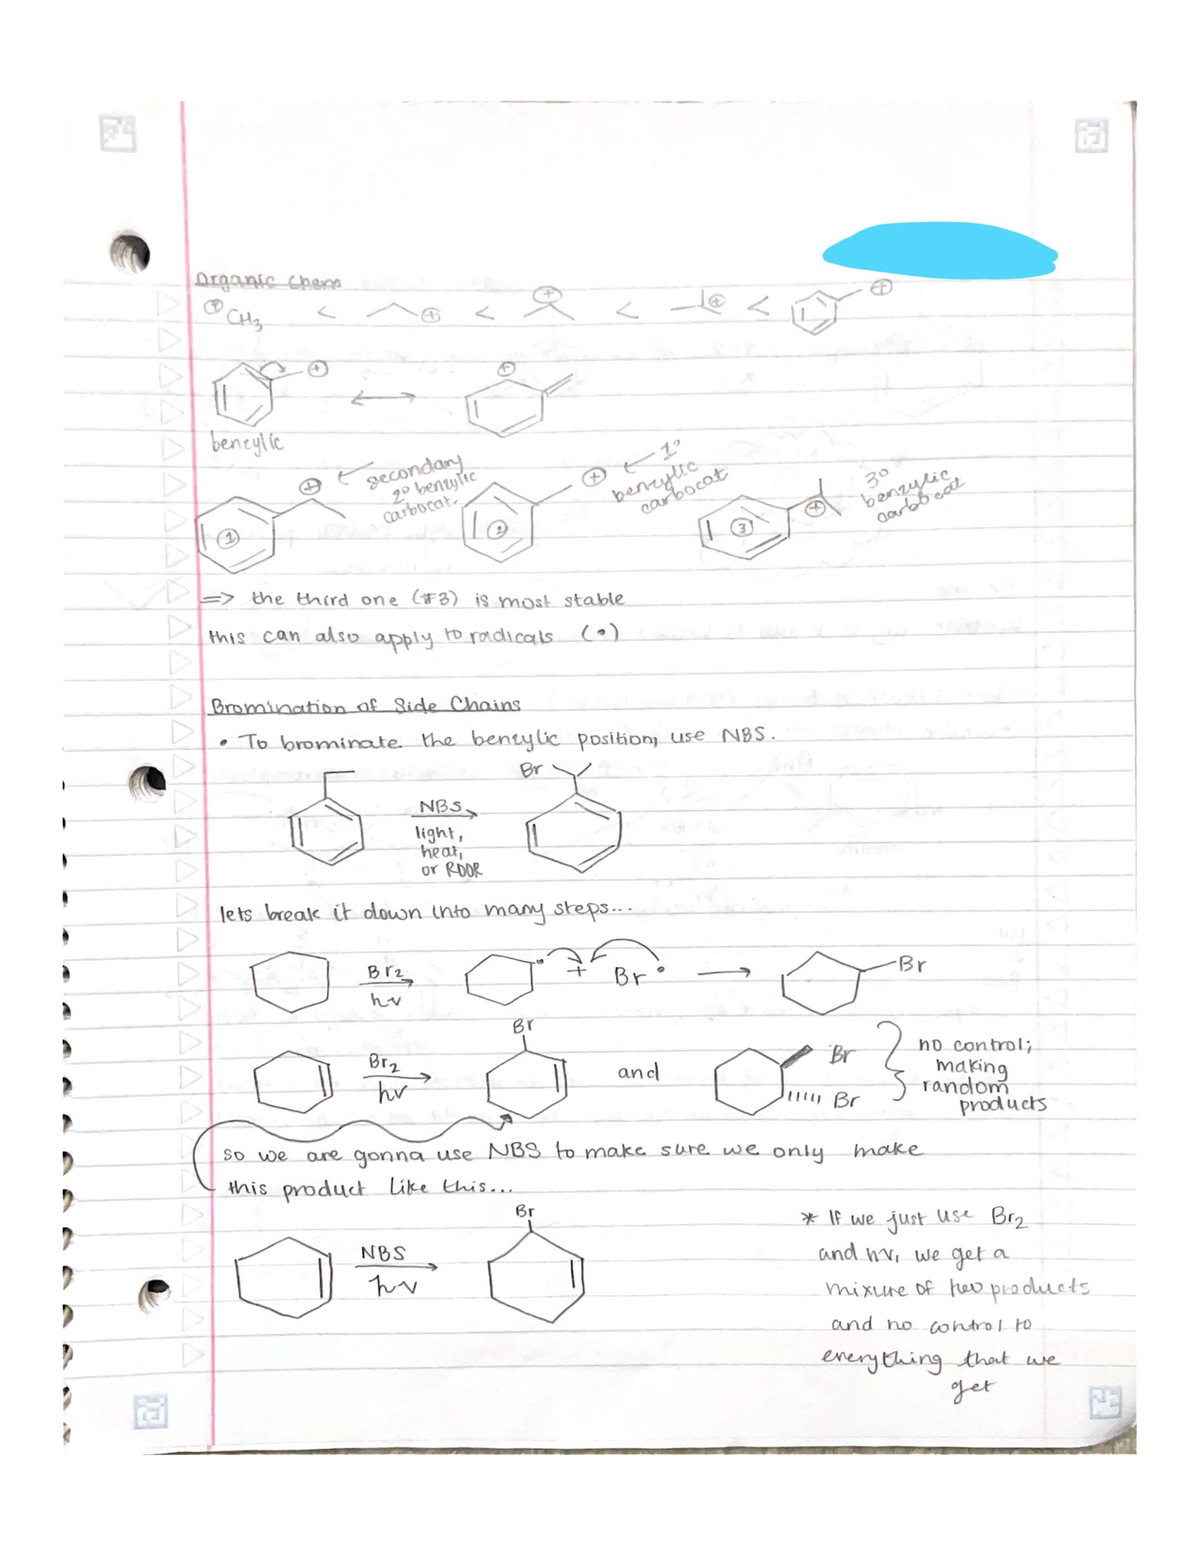 Organic Chem
⊕CH3 < ⊕ < ⊕ < ⊕ < ⊕
⊕ ⟷ ⊕
benzylic
⊕ ← secondary 2° benzylic carbocat.
⊕ ← 1° benzylic carbocat
⊕ 3° benzylic carbocat
1 2 3
=> the third one (#3) is most stable
this can also apply to radicals (•)
Bromination of Side Chains
• To brominate the benzylic position, use NBS.
Br
NBS
light,
heat,
or ROOR
lets break it down into many steps...
Br2 hv • + Br• → Br
Br
Br2 hv and Br Br
no control;
making
random
products
so we are gonna use NBS to make sure we only make
this product like this...
Br
NBS
hv
* If we just use Br2
and hv, we get a
mixure of two products
and no control to
everything that we
get